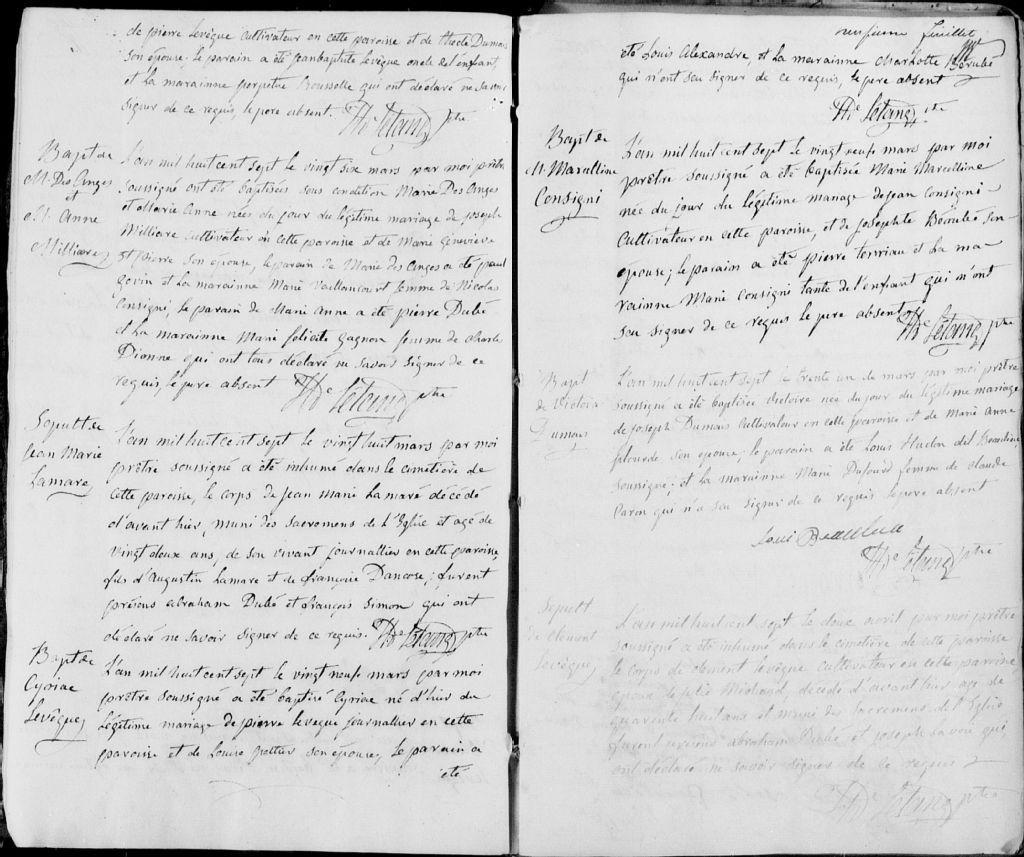 de pierre Levêque Cultivateur en cette paroisse et de thecle Dumais
son épouse. le parain a été jeanbaptiste Levêque oncle de l'enfant,
et la marainne perpetue Rousselle qui ont déclaré ne savoir
signer de ce requis, le pere absent. Th.e Létang ptre
Bapt de
M. Des Anges
et
M. Anne
Milliare
L'an mil huit cent sept le vingt six mars par moi prêtre
soussigné ont été baptisées sous condition Marie Des Anges
et Marie Anne nées du jour du légitime mariage de joseph
Milliare Cultivateur en cette paroisse et de Marie Genevieve
St pierre son épouse, le parain de Marie des Anges a été paul
govin et la marainne Marie Vaillancourt femme de Nicolas
Consigni, le parain de Marie Anne a été pierre Dubé
et la marainne Marie felicité Gagnon femme de Charle
Dionne qui ont tous déclaré ne savoir signer de ce
requis, le pere absent Th.e Létang ptre
Sepult de
Jean Marie
Lamare
L'an mil huit cent sept le vingt huit mars par moi
prêtre soussigné a été inhumé dans le cimetière de
cette paroisse, le corps de jean marie Lamaré décédé
d'avant hier, muni des sacremens de l'Eglise et agé de
vingt doux ans, de son vivant journallier en cette paroisse,
fils d'Augustin Lamare et de françoise Dancose; furent
présens abraham Dubé et françois Simon qui ont
déclaré ne savoir signer de ce requis. Th.e Létang ptre
Bapt de
Cyriac
Levêque
L'an mil huit cent sept le vingt neuf mars par moi
prêtre soussigné a été baptisé Cyriac né d'hier du
légitime mariage de pierre leveque journallier en cette
paroisse et de Louise pottier son épouse, le parain a
été
feuillet
été Louis Alexandre, et la marainne Charlotte Bérubé
qui n'ont seu signer de ce requis, le pere absent
Th.e Létang ptre
Bapt de
M. Marcelline
Consigni
L'an mil huit cent sept le vingt neuf mars par moi
prêtre soussigné a été baptisée Marie Marcelline
née du jour du légitime mariage de jean Consigni
Cultivateur en cette paroisse, et de josephte Béoubé son
épouse; le parain a été pierre terriau et la ma
rainne Marie Consigni tante de l'enfant qui n'ont
seu signer de ce requis le pere absent Th.e Létang ptre
Bapt
de Victoire
Dumais
L'an mil huit cent sept le trente un de mars par moi prêtre
soussigné a été baptisée Victoire née du jour du légitime mariage
de joseph Dumais Cultivateur en cette paroisse et de Marie Anne
plourde son épouse, le parain a été Louis Hudon dit Beaulieu
soussigné; et la marainne Marie Dufourd femme de claude
Caron qui n'a seu signer de ce requis le pere absent
Loui Beaulieu
Th.e Létang ptre
Sepult
de Clement
Levêque
L'an mil huit cent sept le douze avril par moi prêtre
soussigné a été inhumé dans le cimetière de cette paroisse
le corps de clement Levêque cultivateur en cette paroisse
époux de Michaud, décédé d'avant hier agé de
quarante huit ans et muni des sacremens de l'Eglise
furent présens abraham Dubé et joseph Savoie qui
ont déclaré ne savoir signer de ce requis
Th.e Létang ptre